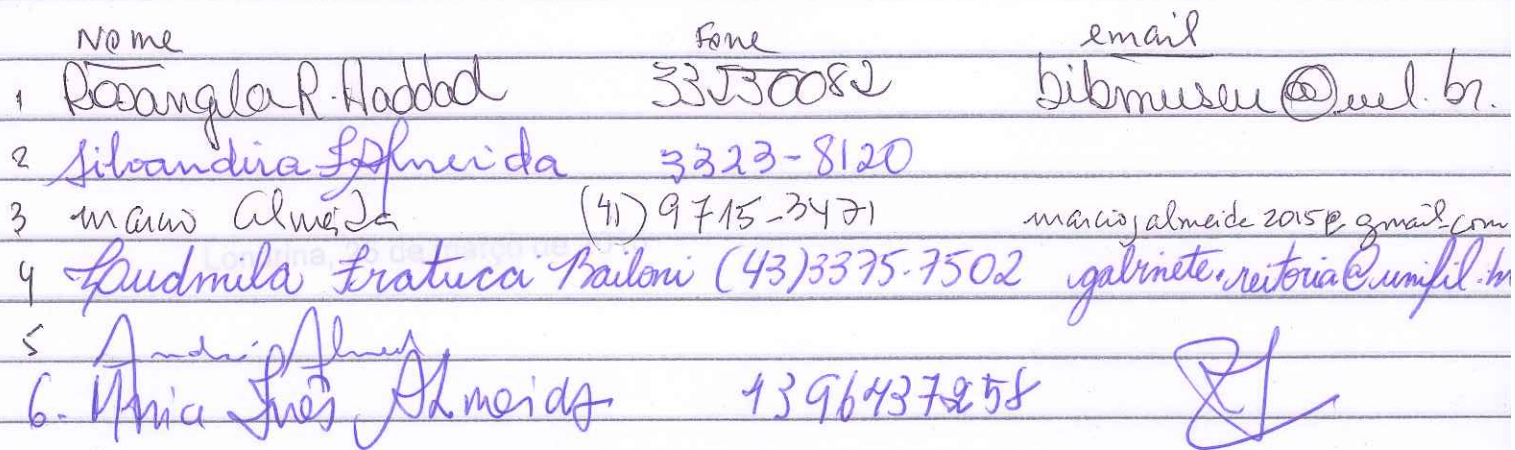 Nome Fone email
1 Rosangela R. Haddad 33230082 bibmuseu@uel.br.
2 Silvandira Almeida 3323-8120
3 marcio Almeida (41) 9715-3471 marciojalmeida2015@gmail.com
4 Ludmila Fratuca Bailoni (43)3375-7502 gabinete.reitoria@unifil.br
5
6. Maria Inês Almeida